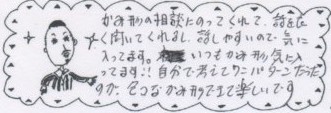 かみ形の相談にのってくれて、話をよ
く聞いてくれるし、話しやすいので気に
入ってます。いつもかみ形気に入
ってます!!自分で考えてワンパターンだった
すが、色々なかみ形できて楽しいです